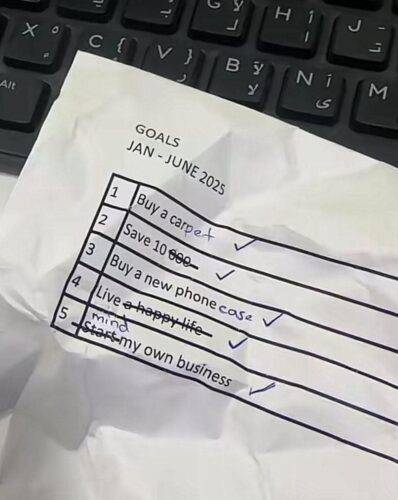 X
C {
V }
B لآ
لا
N أ
ى
M
H أ
ا
J ـ
ت
G لأ
ل
Alt
GOALS
JAN - JUNE 2025
1 Buy a carpet ✓
2 Save 10 000 ✓
3 Buy a new phone case ✓
4 Live a happy life ✓
mind
5 Start my own business ✓